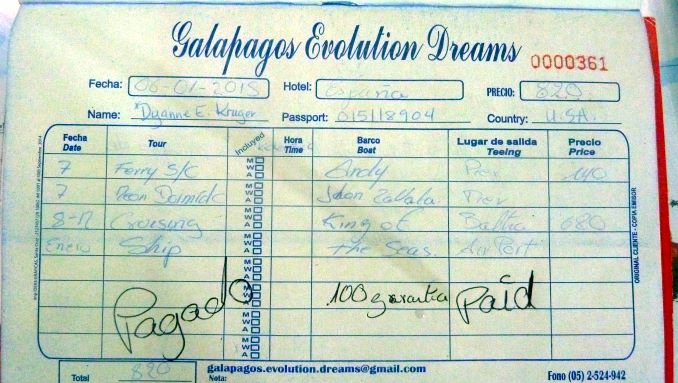 Galapagos Evolution Dreams 0000361
Fecha: 06-01-2015 Hotel: España PRECIO: 820
Name: Dyanne E. Kruger Passport: 015118904 Country: U.S.A.
Fecha Date Tour Incluyed Hora Time Barco Boat Lugar de salida Teeing Precio Price
7 Ferry S/C M W A Andy Pier 140
7 M W A Jhon Zavala Pier
8-11 Croising M W A King of Baltra 680
Enero Ship M W A the Seas. AirPort
M W A
Pagado M W A 100 garantia Paid
M W A
M W A
ORIGINAL CLIENTE - COPIA EMISOR
Total 820 galapagos.evolution.dreams@gmail.com
Nota: Fono (05) 2-524-942